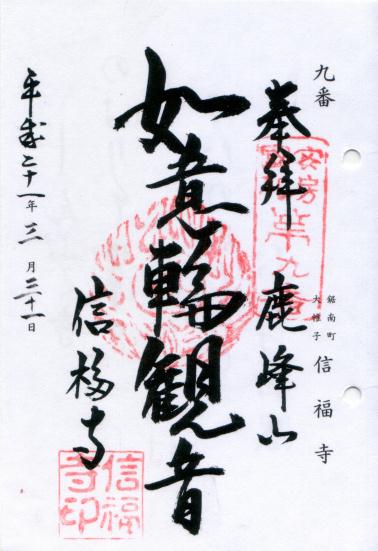 九番
鋸南町
大帷子
信福寺
奉拝
鹿峰山
如意輪観音
信福寺
平成二十一年三月三十一日
安房
第九番
信福
寺印